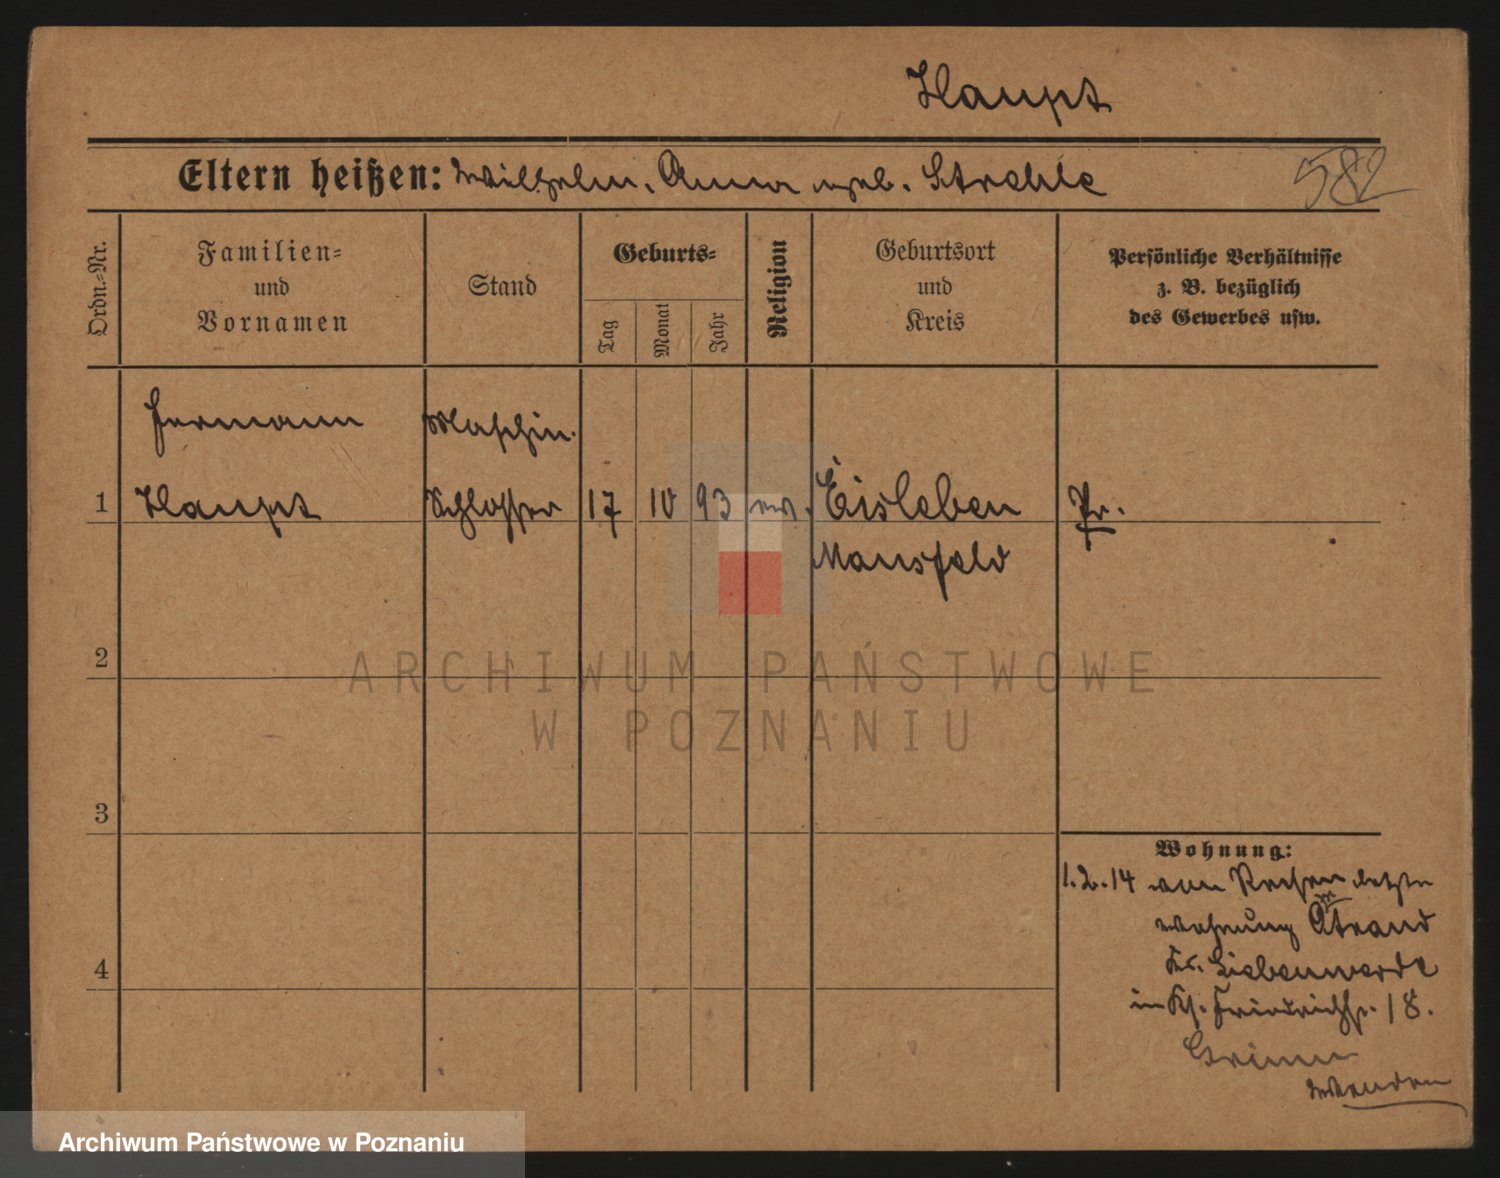 Haupt
Eltern heißen: Wilhelm. Anna geb. Strehle
582
Ordn.=Nr.
Familien=
und
Vornamen
Stand
Geburts=
Tag
Monat
Jahr
Religion
Geburtsort
und
Kreis
Persönliche Verhältnisse
z. B. bezüglich
des Gewerbes usw.
Hermann
Maschin.
1
Haupt
Schlosser
17
10
93
ev.
Eisleben
Pr.
Mansfeld
2
ARCHIWUM PAŃSTWOWE
W POZNANIU
3
Wohnung:
1.2.14 von Reisen letzte
Wohnung
Kr. Liebenwerda
4
in Friedrichstr. 18.
Grimm
wenden
Archiwum Państwowe w Poznaniu